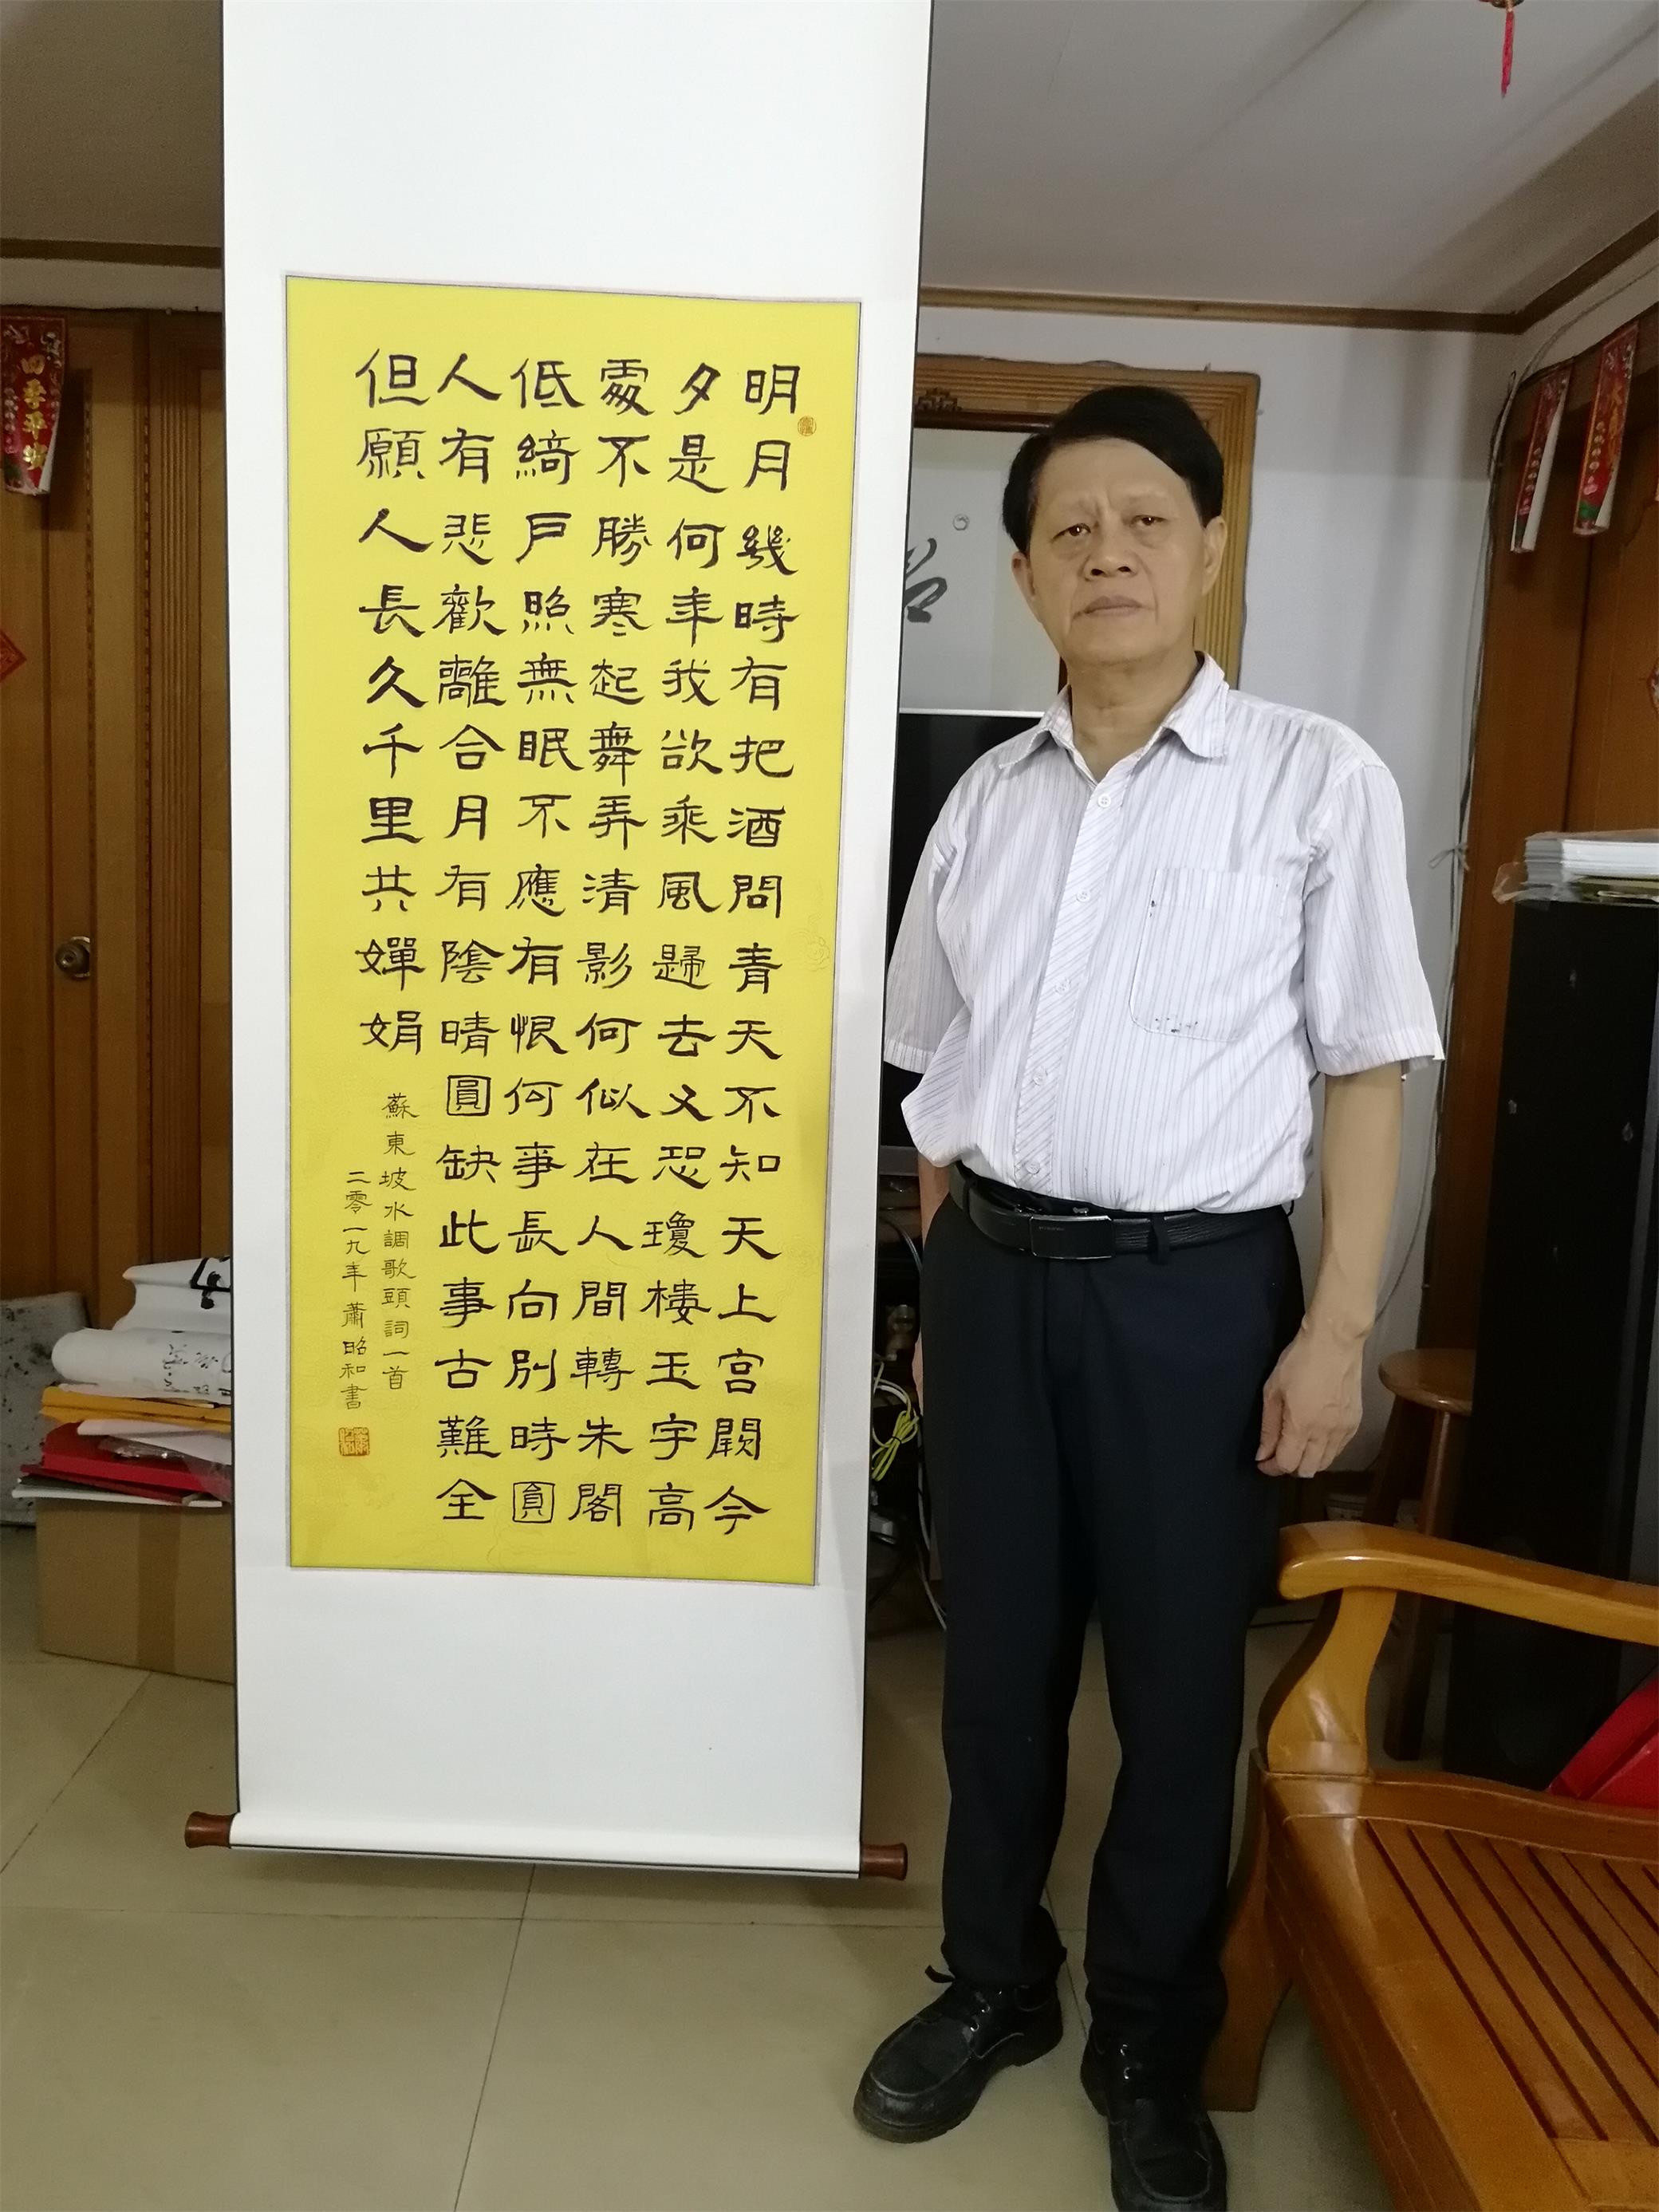 明月幾時有把酒問青天不知天上宮闕今
夕是何年我欲乘風歸去又恐瓊樓玉宇高
處不勝寒起舞弄清影何似在人間轉朱閣
低綺戶照無眠不應有恨何事長向別時圓
人有悲歡離合月有陰晴圓缺此事古難全
但願人長久千里共嬋娟
蘇東坡水調歌頭詞一首
二零一九年蕭昭和書
四季平安